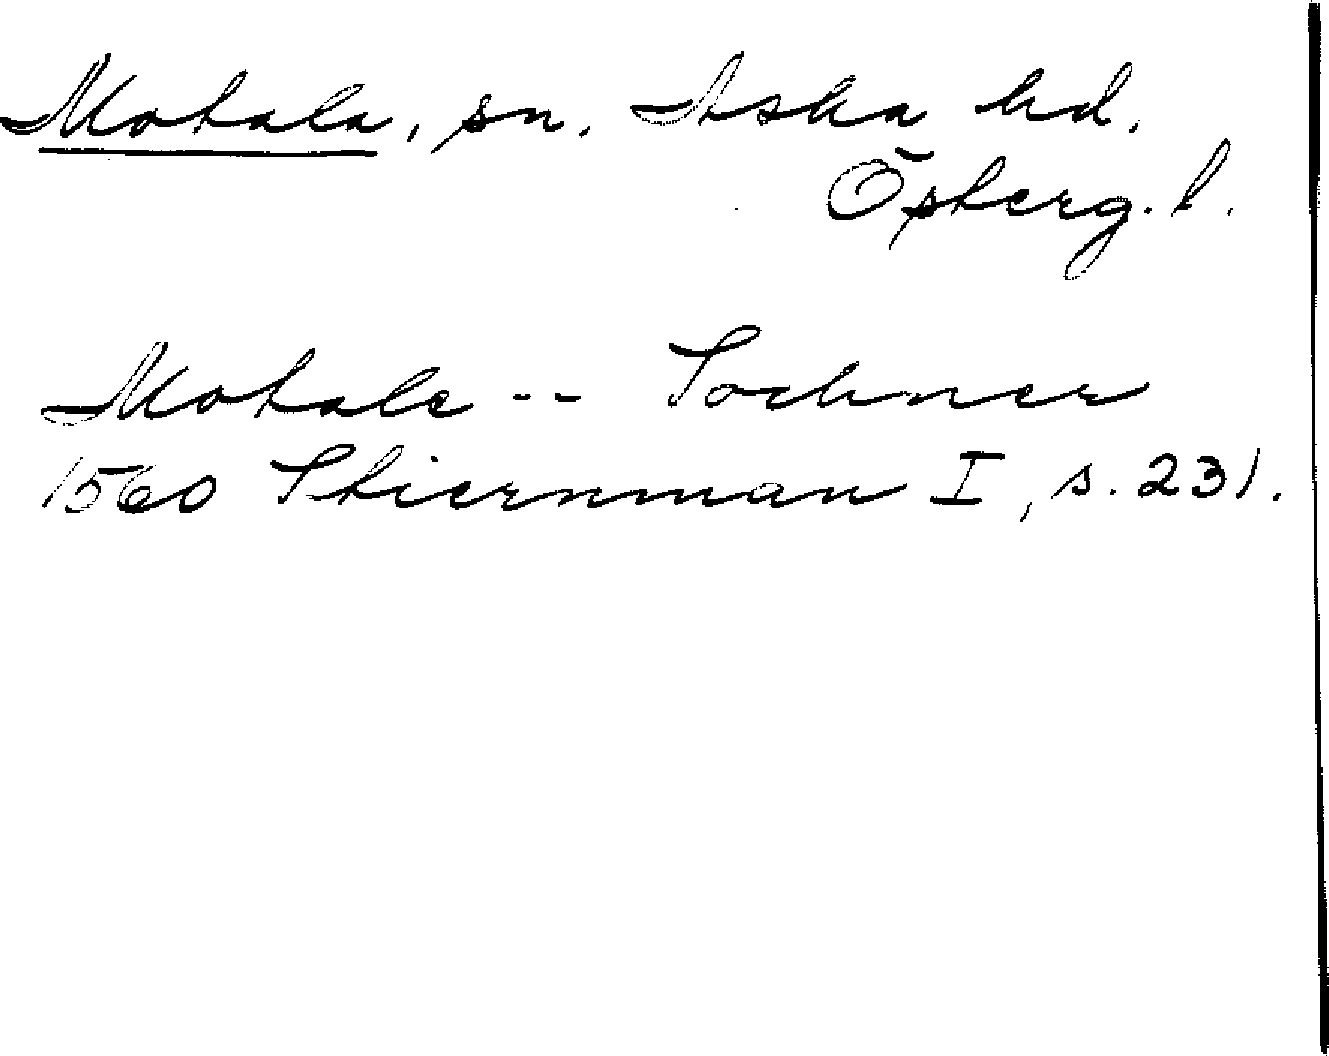 Motala, sn. Aska hd.
Österg. l.
Motale -- Sochner
1560 Stiernman I, s. 231.